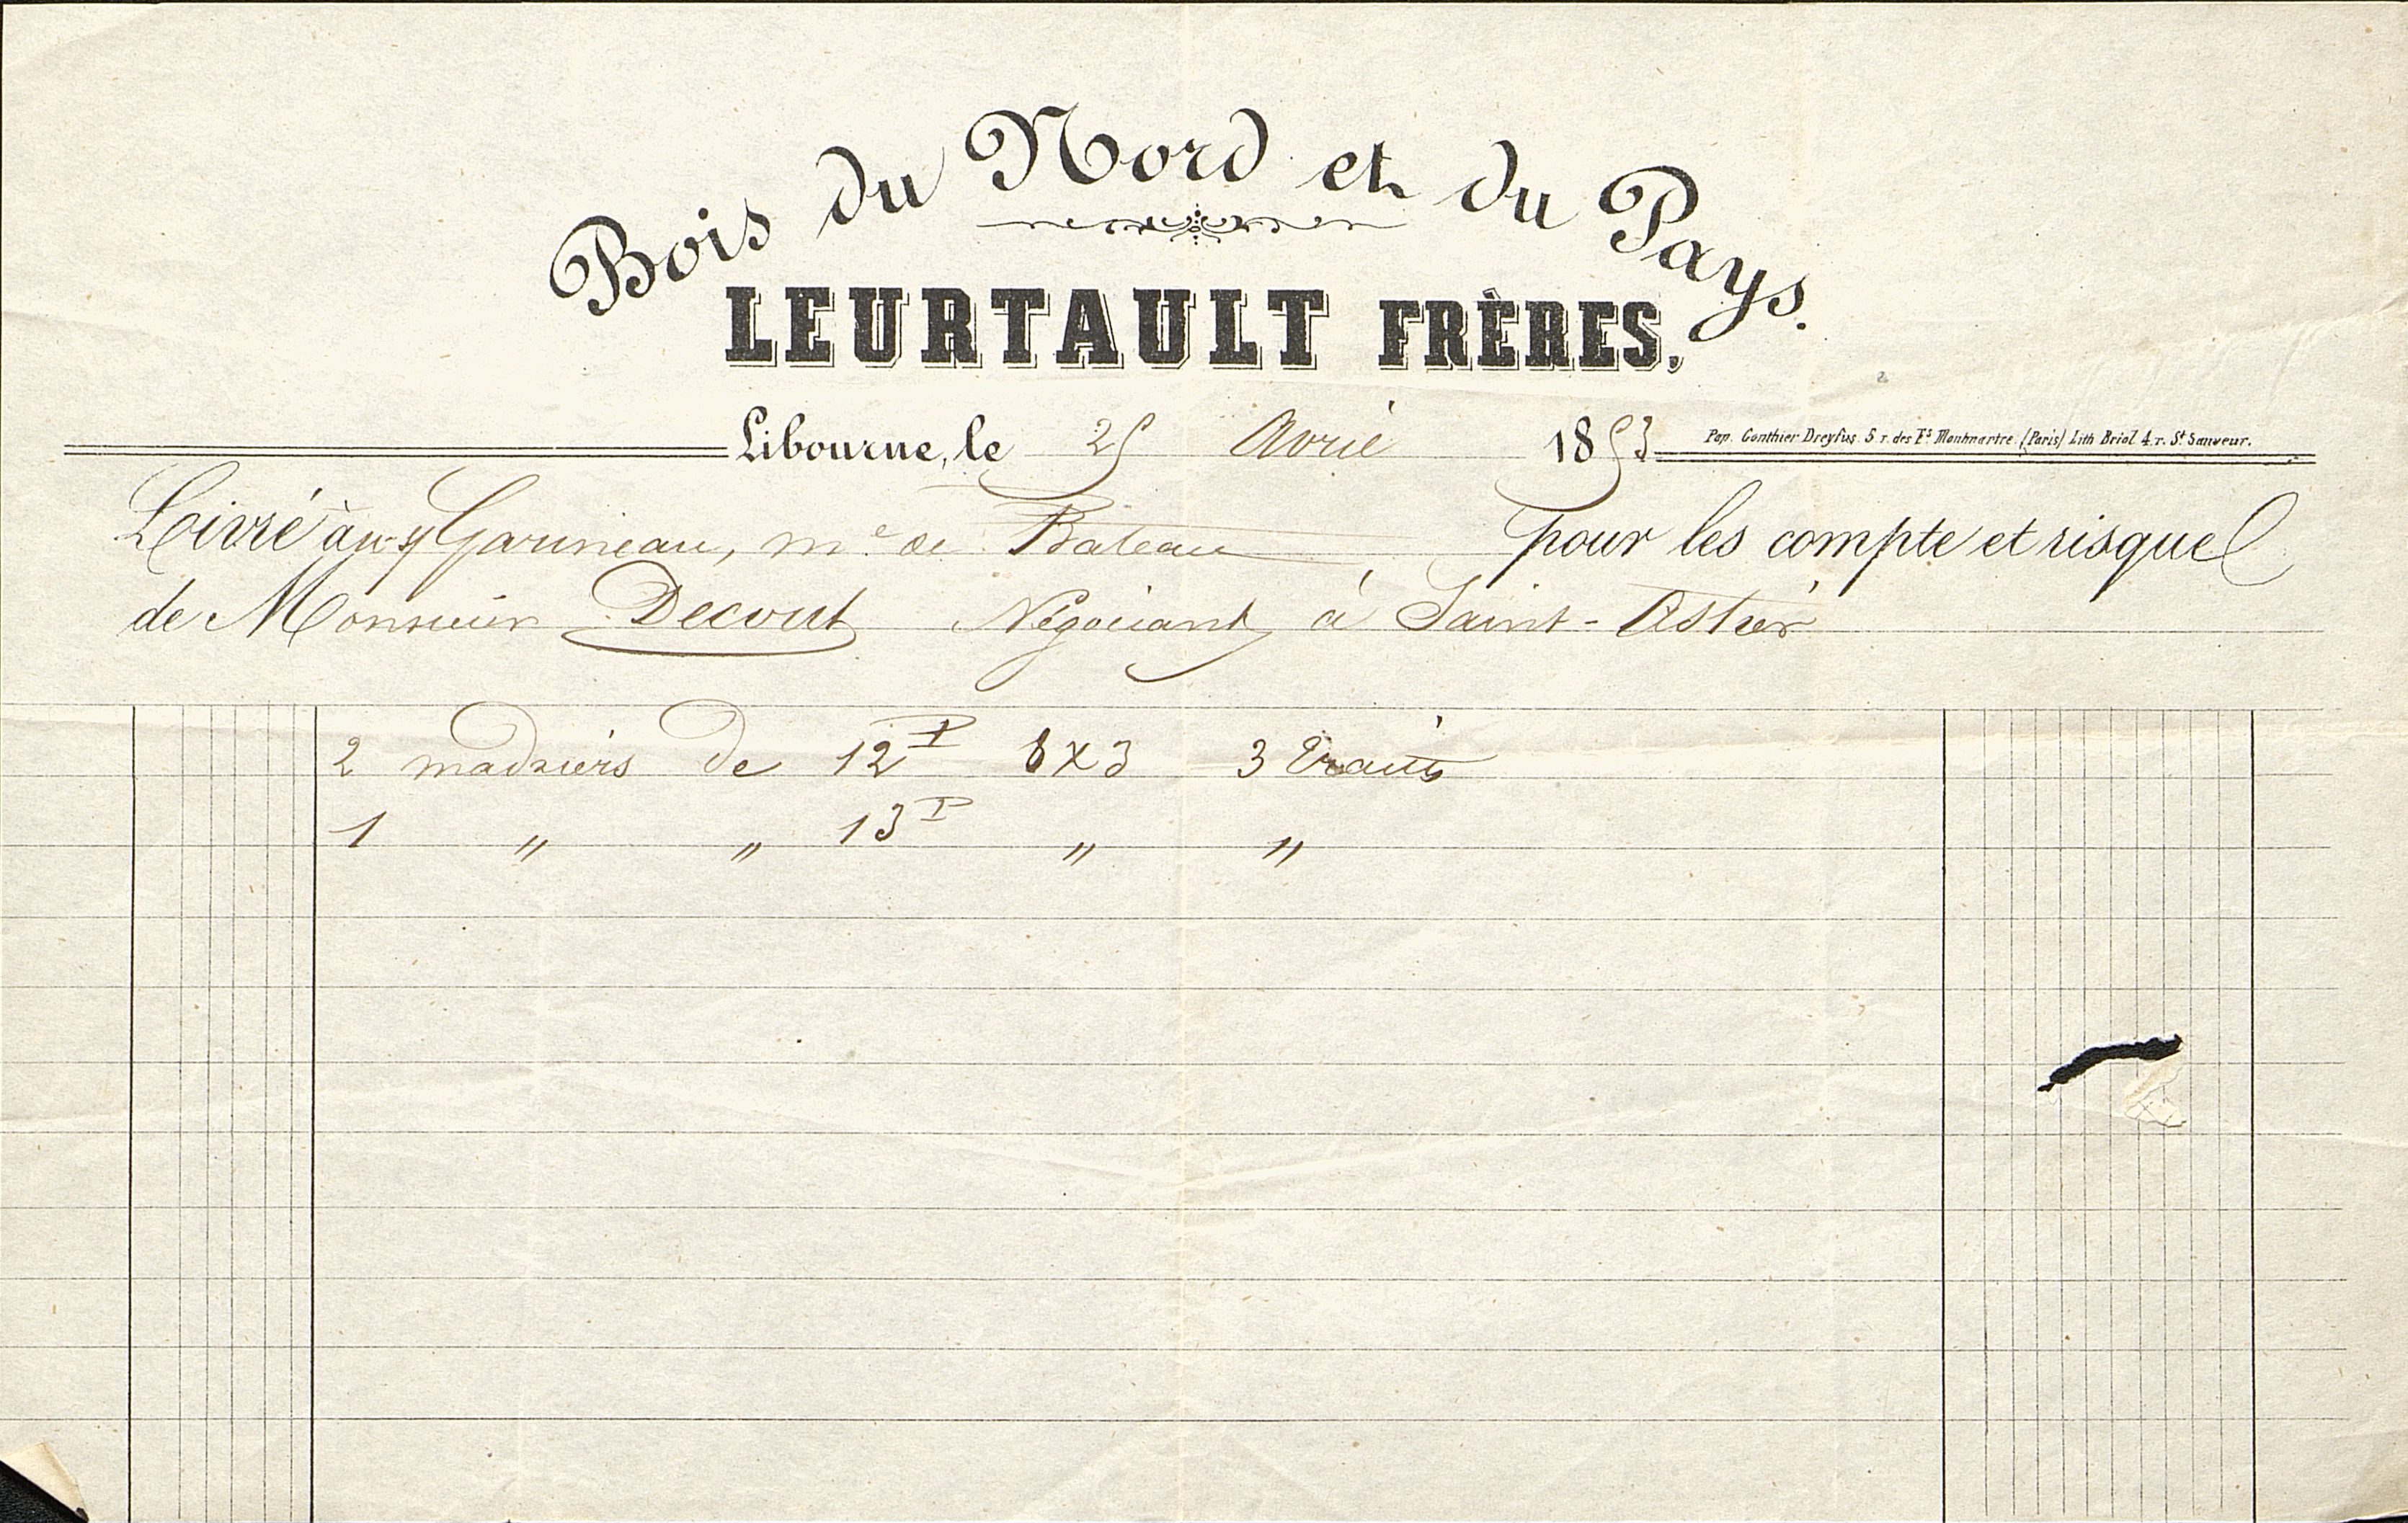 Bois du Nord et du Pays.
LEURTAULT FRÈRES,
Libourne, le 25 Avril 1853
Pap. Gonthier Dreyfus. 5 r. des Fs Montmartre. (Paris) Lith Briol 4. r. St Sauveur.
Livré au Sr Garineau, me de Bateau pour les compte et risque
de Monsieur Decout Négociant à Saint-Astier
2 madriers de 12 P 8 x 3 3 traits
1 " " 13 P " "